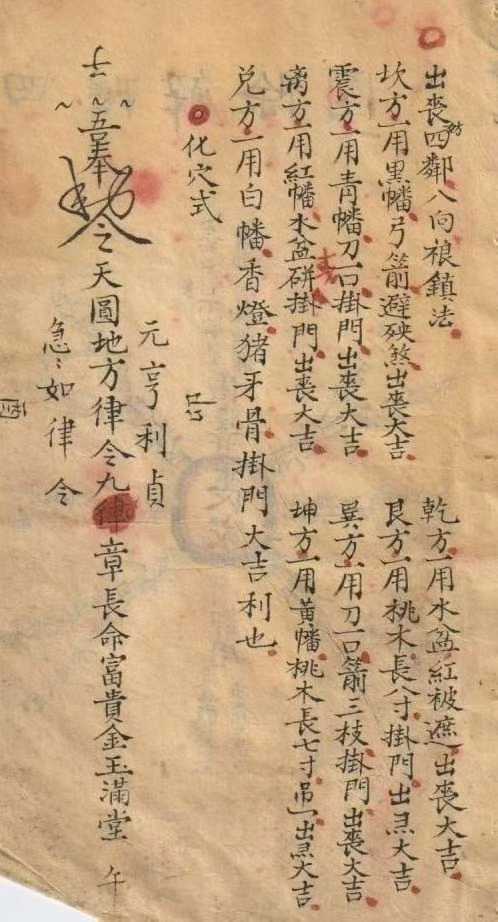 出喪四鄰八向禳鎮法
乾方一用水盆紅被遮出喪大吉
坎方一用黑幡弓箭避殃煞出喪大吉
艮方一用桃木長八寸掛門出喪大吉
震方一用青幡刀一口掛門出喪大吉
巽方一用刀一口箭三枝掛門出喪大吉
离方一用紅幡水盆砂掛門出喪大吉
坤方一用黃幡桃木長七寸吊一出喪大吉
兑方一用白幡香燈猪牙骨掛門大吉利也
化穴式
元亨利貞
五奉
令之天圓地方律令九章長命富貴金玉滿堂 午
急々如律令